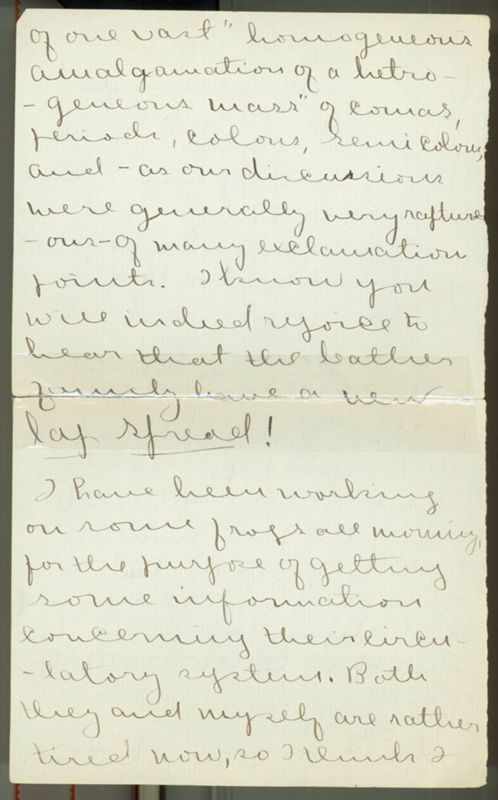 of one vast "homogeneous
amalgamation of a hetro-
-geneous mass" of comas,
periods, colons, semicolons,
and - as our discussions
were generally very rapture
-ous - of many exclamation
points. I know you
will indeed rejoice to
hear that the Cather
family have a new
lap spread!
I have been working
on some frogs all morning,
for the purpose of getting
some information
concerning their circu-
-latory system. Both
they and myself are rather
tired now, so I think I